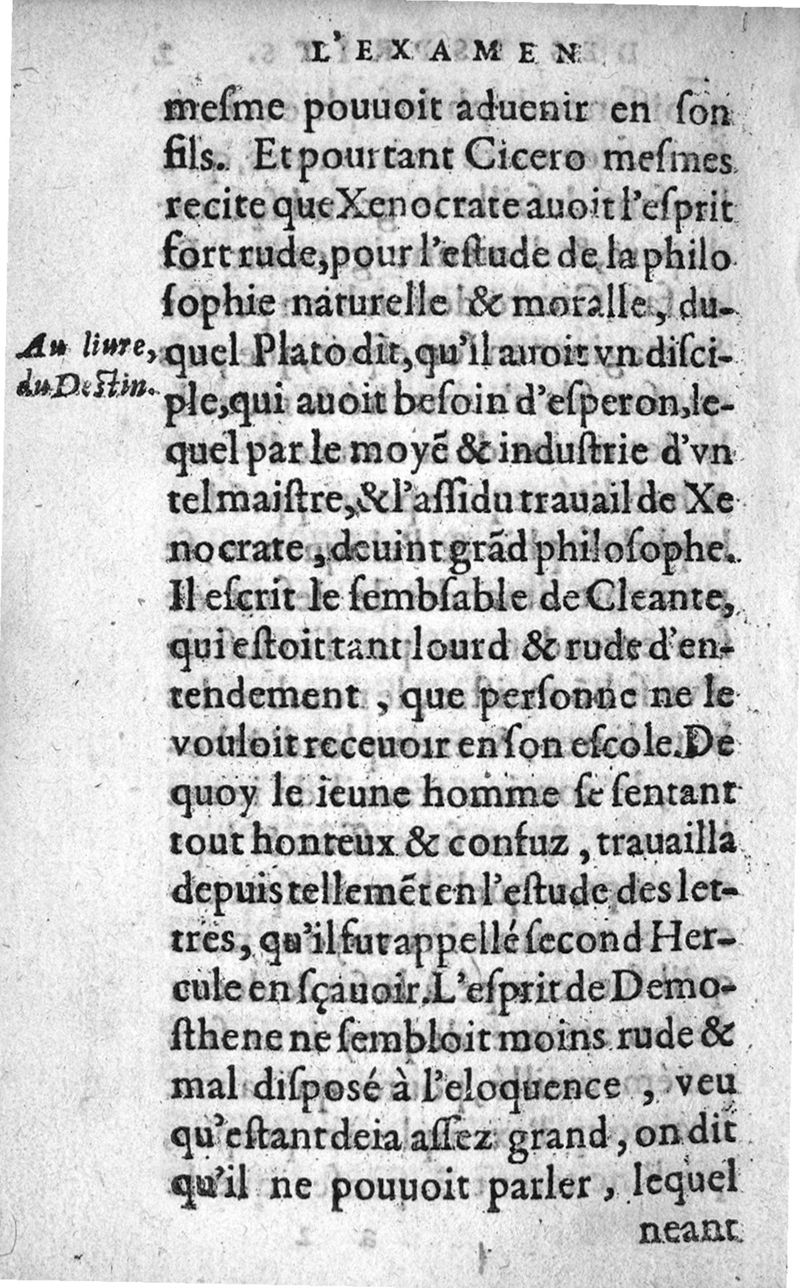 L'EXAMEN
meſme pouuoit aduenir en ſon
fils. Et pourtant Cicero meſmes
recite que Xenocrate auoit l'eſprit
fort rude, pour l'eſtude de la philo
ſophie naturelle & moralle, du-
Au liure, quel Plato dit, qu'il auoit vn diſci-
du Deſtin. ple, qui auoit beſoin d'eſperon, le-
quel par le moyẽ & induſtrie d'vn
tel maiſtre, & l'aſſidu trauail de Xe
nocrate, deuint grãd philoſophe.
Il eſcrit le ſembſable de Cleante,
qui eſtoit tant lourd & rude d'en-
tendement, que perſonne ne le
vouloit receuoir en ſon eſcole. De
quoy le ieune homme ſe ſentant
tout honteux & confuz, trauailla
depuis tellemẽt en l'eſtude des let-
tres, qu'il fut appellé ſecond Her-
cule en ſçauoir. L'eſprit de Demo-
ſthene ne ſembloit moins rude &
mal diſposé à l'eloquence, veu
qu'eſtant deia aſſez grand, on dit
qu'il ne pouuoit parler, lequel
neant